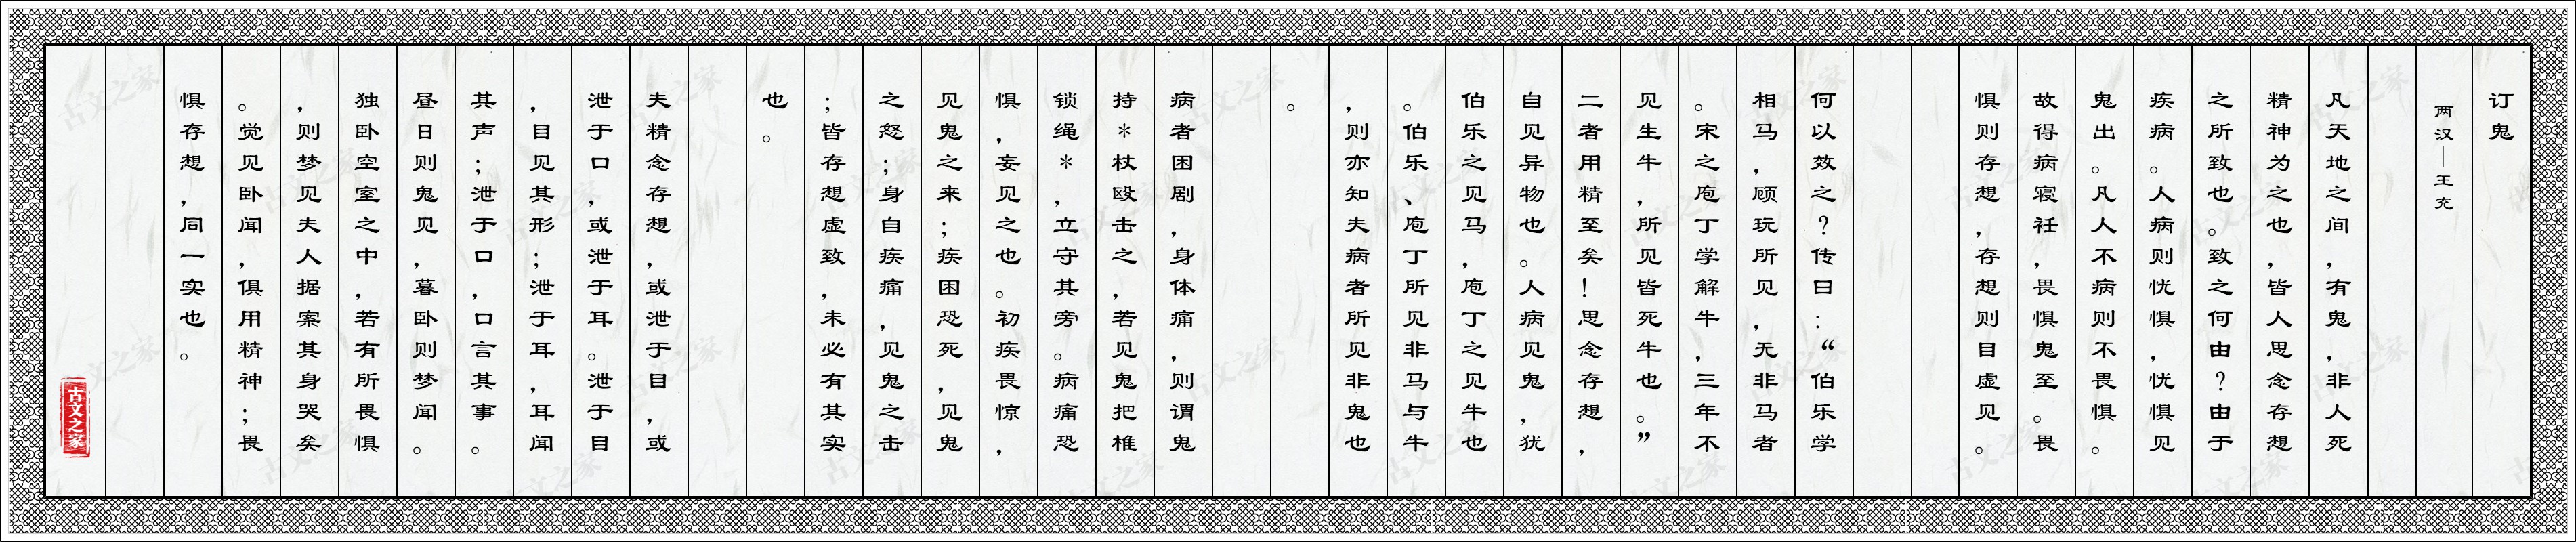 订鬼
两汉—王充
凡天地之间，有鬼，非人死
精神为之也，皆人思念存想
之所致也。致之何由？由于
疾病。人病则忧惧，忧惧见
鬼出。凡人不病则不畏惧。
故得病寝衽，畏惧鬼至。畏
惧则存想，存想则目虚见。
何以效之？传曰：“伯乐学
相马，顾玩所见，无非马者
。宋之庖丁学解牛，三年不
见生牛，所见皆死牛也。”
二者用精至矣！思念存想，
自见异物也。人病见鬼，犹
伯乐之见马，庖丁之见牛也
。伯乐、庖丁所见非马与牛
，则亦知夫病者所见非鬼也
。
病者困剧，身体痛，则谓鬼
持*杖殴击之，若见鬼把椎
锁绳*，立守其旁。病痛恐
惧，妄见之也。初疾畏惊，
见鬼之来；疾困恐死，见鬼
之怒；身自疾痛，见鬼之击
；皆存想虚致，未必有其实
也。
夫精念存想，或泄于目，或
泄于口，或泄于耳。泄于目
，目见其形；泄于耳，耳闻
其声；泄于口，口言其事。
昼日则鬼见，暮卧则梦闻。
独卧空室之中，若有所畏惧
，则梦见夫人据案其身哭矣
。觉见卧闻，俱用精神；畏
惧存想，同一实也。
古文之家